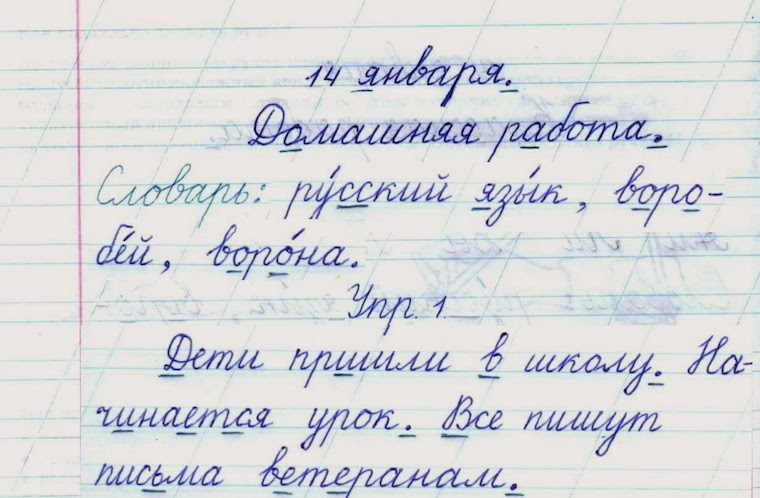 14 января.
Домашняя работа.
Словарь: ру́сский язы́к, воро-
бе́й, воро́на.
Упр. 1
Дети пришли в школу. На-
чинается урок. Все пишут
письма ветеранам.